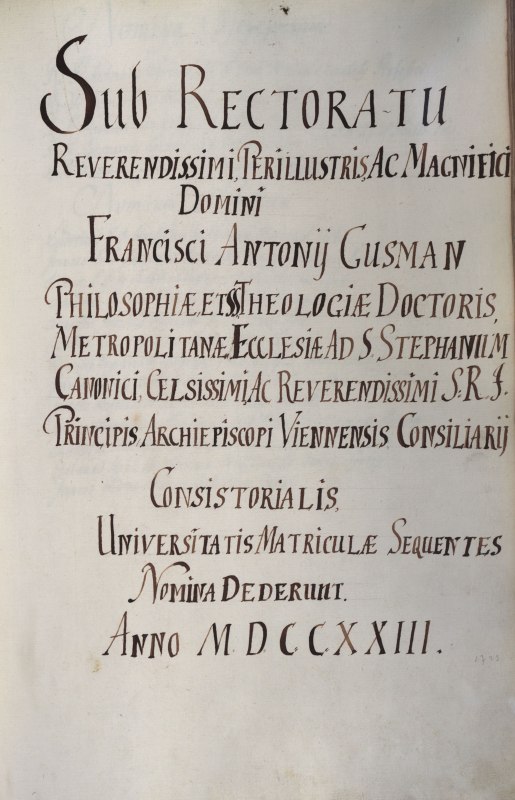 Sub RECTORATU
REVERENDISSIMI, PERILLUSTRIS, AC MAGNIFICI
DOMINI
FRANCISCI ANTONIJ GUSMAN
PHILOSOPHIÆ, ET SS. THEOLOGIÆ DOCTORIS,
METROPOLITANÆ ECCLESIÆ AD S. STEPHANUM
CANONICI, CELSISSIMI, AC REVERENDISSIMI S. R. I.
PRINCIPIS, ARCHIEPISCOPI VIENNENSIS CONSILIARIJ
CONSISTORIALIS,
UNIVERSITATIS MATRICULÆ SEQUENTES
NOMINA DEDERUNT.
ANNO M D C C X X I I I.
1723